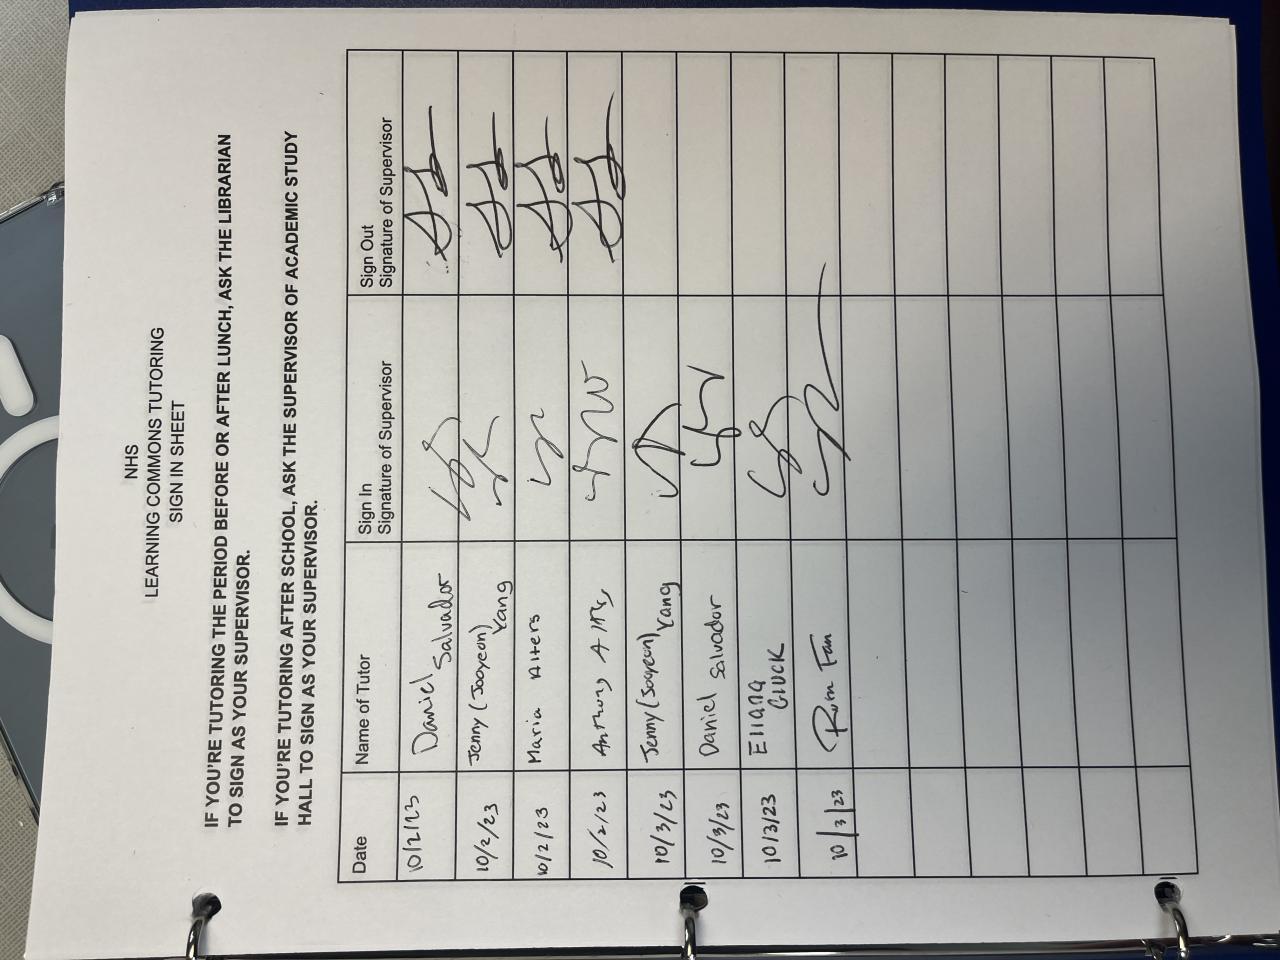 NHS
LEARNING COMMONS TUTORING
SIGN IN SHEET
IF YOU'RE TUTORING THE PERIOD BEFORE OR AFTER LUNCH, ASK THE LIBRARIAN
TO SIGN AS YOUR SUPERVISOR.
IF YOU'RE TUTORING AFTER SCHOOL, ASK THE SUPERVISOR OF ACADEMIC STUDY
HALL TO SIGN AS YOUR SUPERVISOR.
Date
Name of Tutor
Sign In
Signature of Supervisor
Sign Out
Signature of Supervisor
10/2/23
Daniel
Salvador
10/2/23
Jenny (Jooyeon)
Yang
10/2/23
Maria Alters
10/2/23
Anthony
10/3/23
Jenny (Jooyeon)
Yang
10/3/23
Daniel Salvador
10/3/23
Eliana
Gluck
10/3/23
Fan